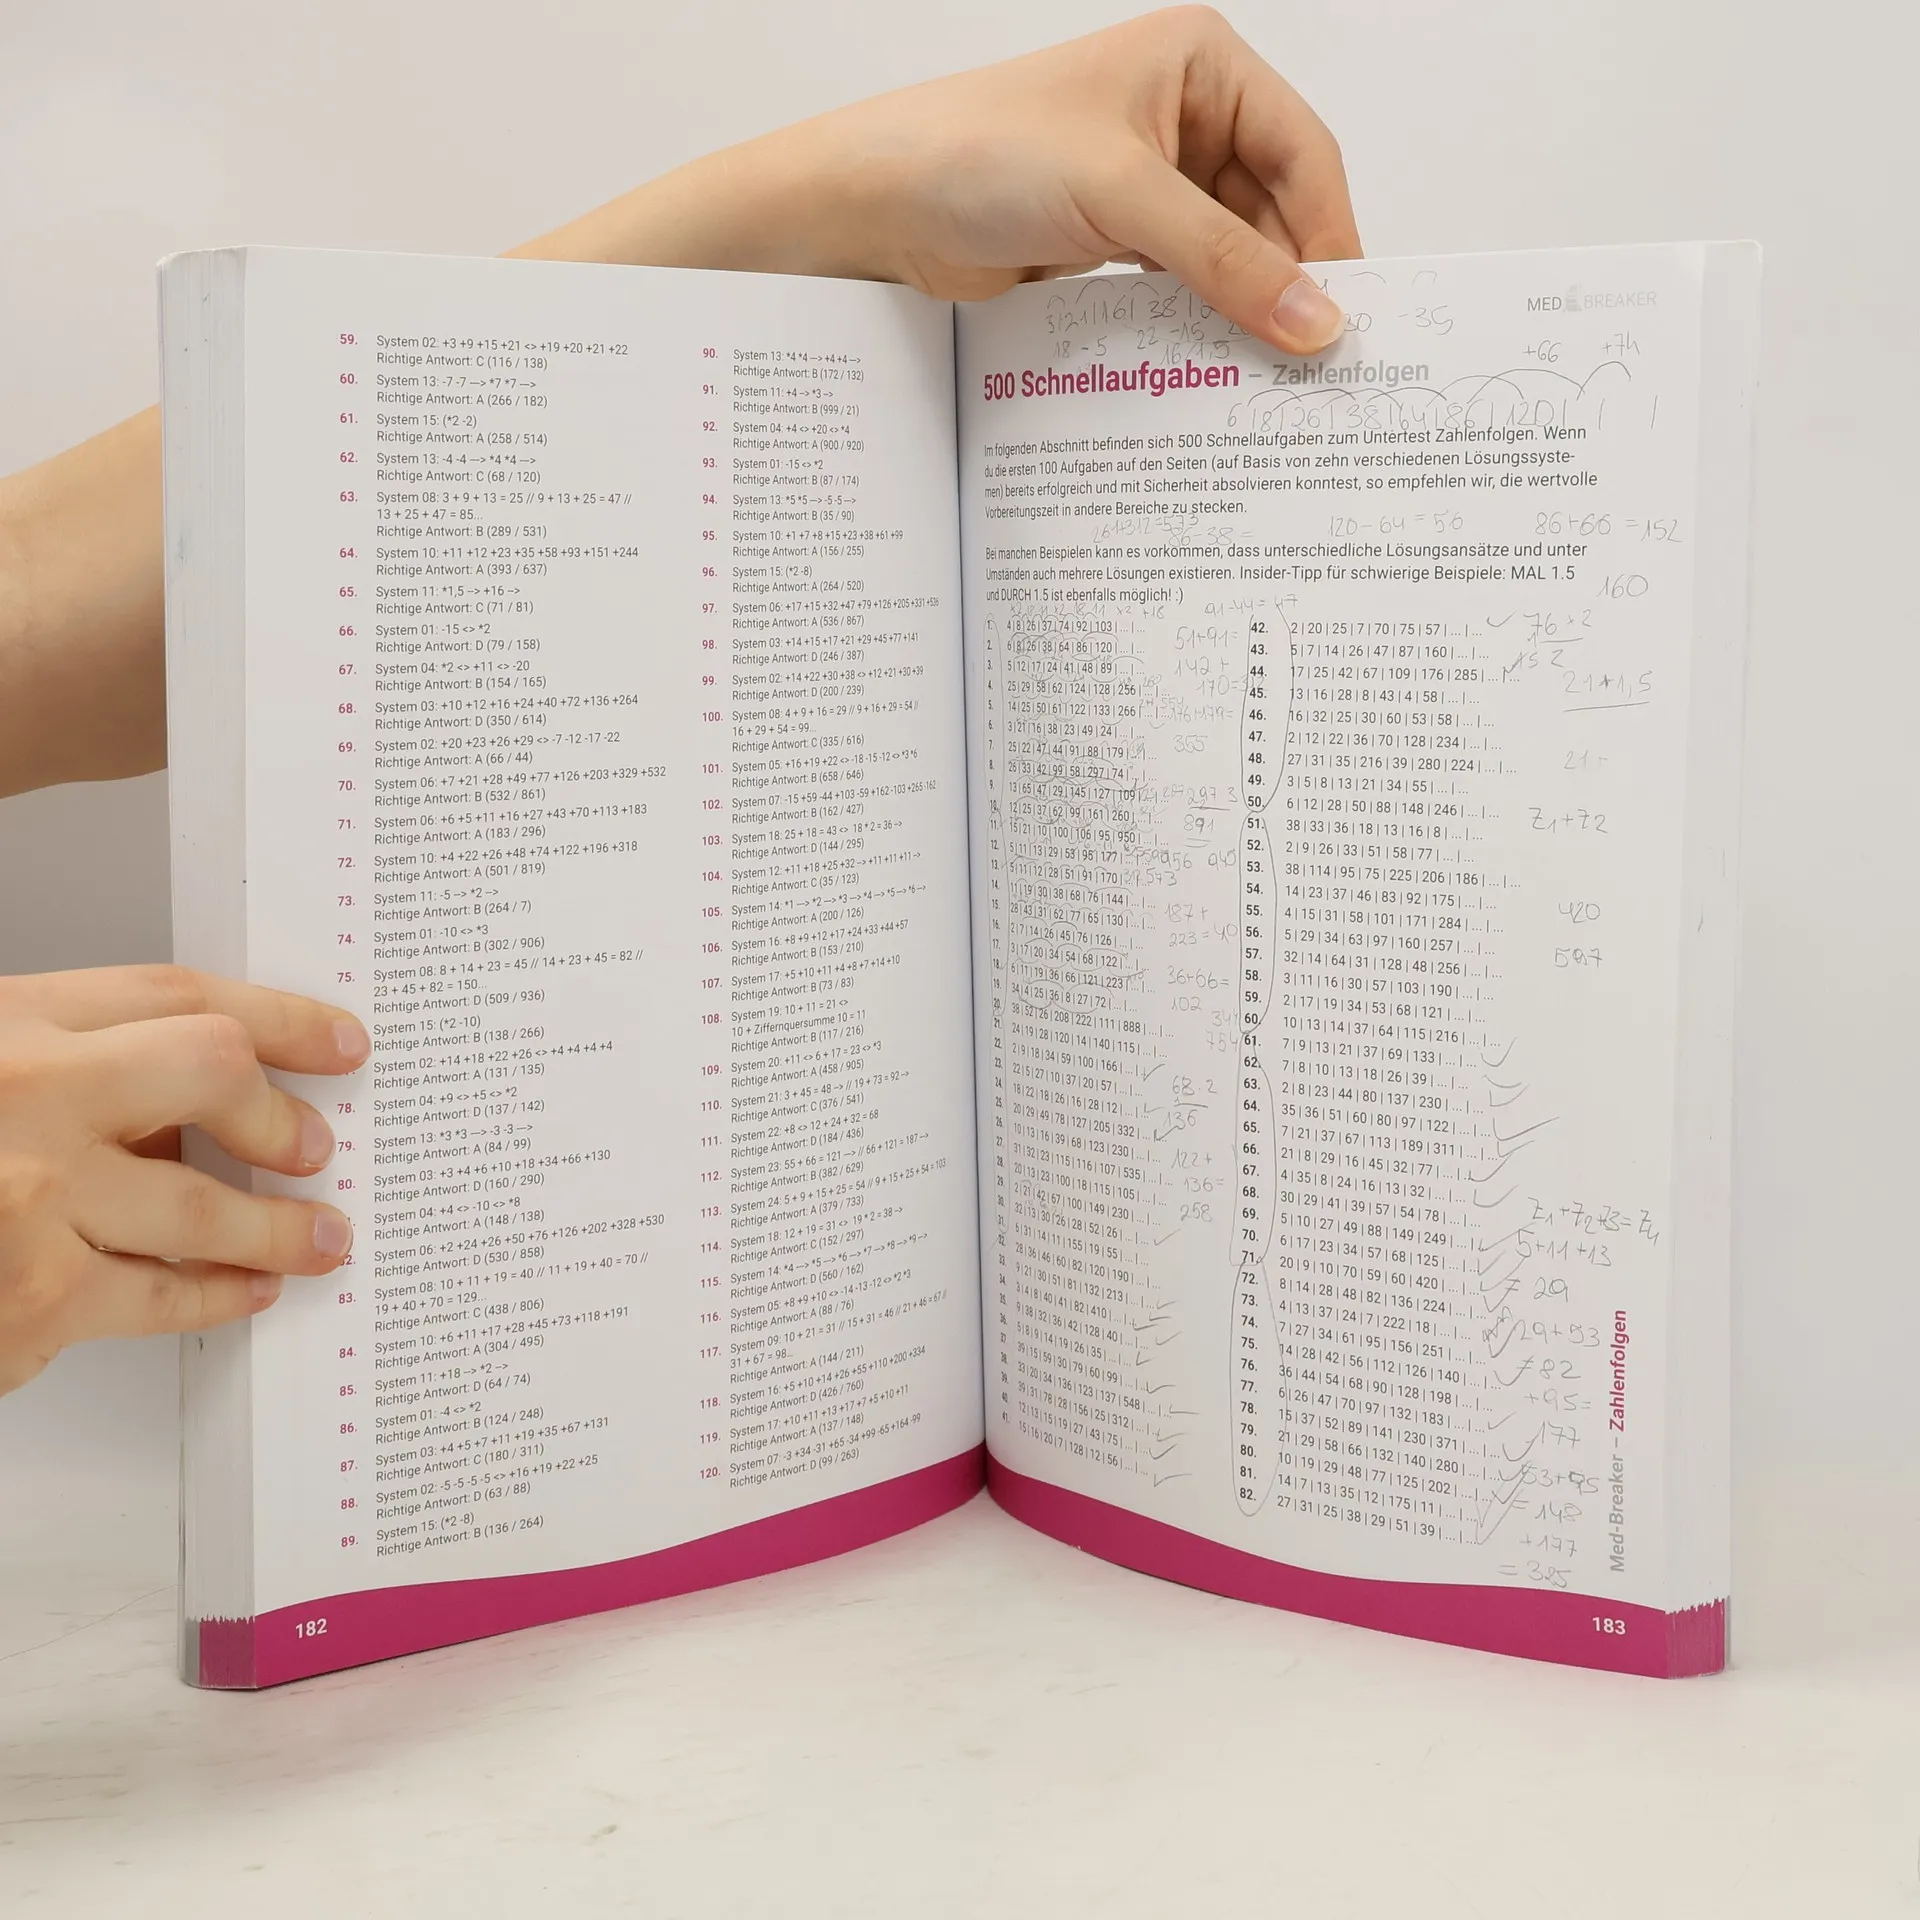 59. System 02: +3 +9 +15 +21 <> +19 +20 +21 +22
Richtige Antwort: C (116 / 138)
60. System 13: -7 -7 —> *7 *7 —>
Richtige Antwort: A (266 / 182)
61. System 15: (*2 -2)
Richtige Antwort: A (258 / 514)
62. System 13: -4 -4 —> *4 *4 —>
Richtige Antwort: C (68 / 120)
63. System 08: 3 + 9 + 13 = 25 // 9 + 13 + 25 = 47 //
13 + 25 + 47 = 85...
Richtige Antwort: B (289 / 531)
64. System 10: +11 +12 +23 +35 +58 +93 +151 +244
Richtige Antwort: A (393 / 637)
65. System 11: *1,5 —> +16 —>
Richtige Antwort: C (71 / 81)
66. System 01: -15 <> *2
Richtige Antwort: D (79 / 158)
67. System 04: *2 <> +11 <> -20
Richtige Antwort: B (154 / 165)
68. System 03: +10 +12 +16 +24 +40 +72 +136 +264
Richtige Antwort: D (350 / 614)
69. System 02: +20 +23 +26 +29 <> -7 -12 -17 -22
Richtige Antwort: A (66 / 44)
70. System 06: +7 +21 +28 +49 +77 +126 +203 +329 +532
Richtige Antwort: B (532 / 861)
71. System 06: +6 +5 +11 +16 +27 +43 +70 +113 +183
Richtige Antwort: A (183 / 296)
72. System 10: +4 +22 +26 +48 +74 +122 +196 +318
Richtige Antwort: A (501 / 819)
73. System 11: -5 —> *2 —>
Richtige Antwort: B (264 / 7)
74. System 01: -10 <> *3
Richtige Antwort: B (302 / 906)
75. System 08: 8 + 14 + 23 = 45 // 14 + 23 + 45 = 82 //
23 + 45 + 82 = 150...
Richtige Antwort: D (509 / 936)
System 15: (*2 -10)
Richtige Antwort: B (138 / 266)
System 02: +14 +18 +22 +26 <> +4 +4 +4 +4
Richtige Antwort: A (131 / 135)
78. System 04: +9 <> +5 <> *2
Richtige Antwort: D (137 / 142)
79. System 13: *3 *3 —> -3 -3 —>
Richtige Antwort: A (84 / 99)
80. System 03: +3 +4 +6 +10 +18 +34 +66 +130
Richtige Antwort: D (160 / 290)
System 04: +4 <> -10 <> *8
Richtige Antwort: A (148 / 138)
System 06: +2 +24 +26 +50 +76 +126 +202 +328 +530
Richtige Antwort: D (530 / 858)
83. System 08: 10 + 11 + 19 = 40 // 11 + 19 + 40 = 70 //
19 + 40 + 70 = 129...
Richtige Antwort: C (438 / 806)
84. System 10: +6 +11 +17 +28 +45 +73 +118 +191
Richtige Antwort: A (304 / 495)
85. System 11: +18 —> *2 —>
Richtige Antwort: D (64 / 74)
86. System 01: -4 <> *2
Richtige Antwort: B (124 / 248)
87. System 03: +4 +5 +7 +11 +19 +35 +67 +131
Richtige Antwort: C (180 / 311)
88. System 02: -5 -5 -5 -5 <> +16 +19 +22 +25
Richtige Antwort: D (63 / 88)
89. System 15: (*2 -8)
Richtige Antwort: B (136 / 264)
182
90. System 13: *4 *4 —> +4 +4 —>
Richtige Antwort: B (172 / 132)
91. System 11: +4 —> *3 —>
Richtige Antwort: B (999 / 21)
92. System 04: +4 <> +20 <> *4
Richtige Antwort: A (900 / 920)
93. System 01: -15 <> *2
Richtige Antwort: B (87 / 174)
94. System 13: *5 *5 —> -5 -5 —>
Richtige Antwort: B (35 / 90)
95. System 10: +1 +7 +8 +15 +23 +38 +61 +99
Richtige Antwort: A (156 / 255)
96. System 15: (*2 -8)
Richtige Antwort: A (264 / 520)
97. System 06: +17 +15 +32 +47 +79 +126 +205 +331 +536
Richtige Antwort: A (536 / 867)
98. System 03: +14 +15 +17 +21 +29 +45 +77 +141
Richtige Antwort: D (246 / 387)
99. System 02: +14 +22 +30 +38 <> +12 +21 +30 +39
Richtige Antwort: D (200 / 239)
100. System 08: 4 + 9 + 16 = 29 // 9 + 16 + 29 = 54 //
16 + 29 + 54 = 99...
Richtige Antwort: C (335 / 616)
101. System 05: +16 +19 +22 <> -18 -15 -12 <> *3 *6
Richtige Antwort: B (658 / 646)
102. System 07: -15 +59 -44 +103 -59 +162 -103 +265 -162
Richtige Antwort: B (162 / 427)
103. System 18: 25 + 18 = 43 <> 18 * 2 = 36 —>
Richtige Antwort: D (144 / 295)
104. System 12: +11 +18 +25 +32 —> +11 +11 +11 —>
Richtige Antwort: C (35 / 123)
105. System 14: *1 —> *2 —> *3 —> *4 —> *5 —> *6 —>
Richtige Antwort: A (200 / 126)
106. System 16: +8 +9 +12 +17 +24 +33 +44 +57
Richtige Antwort: B (153 / 210)
107. System 17: +5 +10 +11 +4 +8 +7 +14 +10
Richtige Antwort: B (73 / 83)
108. System 19: 10 + 11 = 21 <>
10 + Ziffernquersumme 10 = 11
Richtige Antwort: B (117 / 216)
109. System 20: +11 <> 6 + 17 = 23 <> *3
Richtige Antwort: A (458 / 905)
110. System 21: 3 + 45 = 48 —> // 19 + 73 = 92 —>
Richtige Antwort: C (376 / 541)
111. System 22: +8 <> 12 + 24 + 32 = 68
Richtige Antwort: D (184 / 436)
112. System 23: 55 + 66 = 121 —> // 66 + 121 = 187 —>
Richtige Antwort: B (382 / 629)
113. System 24: 5 + 9 + 15 + 25 = 54 // 9 + 15 + 25 + 54 = 103
Richtige Antwort: A (379 / 733)
114. System 18: 12 + 19 = 31 <> 19 * 2 = 38 —>
Richtige Antwort: C (152 / 297)
115. System 14: *4 —> *5 —> *6 —> *7 —> *8 —> *9 —>
Richtige Antwort: D (560 / 162)
116. System 05: +8 +9 +10 <> -14 -13 -12 <> *2 *3
Richtige Antwort: A (88 / 76)
117. System 09: 10 + 21 = 31 // 15 + 31 = 46 // 21 + 46 = 67 //
31 + 67 = 98...
Richtige Antwort: A (144 / 211)
118. System 16: +5 +10 +14 +26 +55 +110 +200 +334
Richtige Antwort: D (426 / 760)
119. System 17: +10 +11 +13 +17 +7 +5 +10 +11
Richtige Antwort: A (137 / 148)
120. System 07: -3 +34 -31 +65 -34 +99 -65 +164 -99
Richtige Antwort: D (99 / 263)
MED BREAKER
-35
22 -15
18 - 5
+66 +74
500 Schnellaufgaben – Zahlenfolgen
6|8|26|38|64|86|120| | |
Im folgenden Abschnitt befinden sich 500 Schnellaufgaben zum Untertest Zahlenfolgen. Wenn
du die ersten 100 Aufgaben auf den Seiten (auf Basis von zehn verschiedenen Lösungssyste-
men) bereits erfolgreich und mit Sicherheit absolvieren konntest, so empfehlen wir, die wertvolle
Vorbereitungszeit in andere Bereiche zu stecken.
261+312=573
86-38=
120-64=56
86+66=152
Bei manchen Beispielen kann es vorkommen, dass unterschiedliche Lösungsansätze und unter
Umständen auch mehrere Lösungen existieren. Insider-Tipp für schwierige Beispiele: MAL 1.5
und DURCH 1.5 ist ebenfalls möglich! :)
160
91-44=47
1. 4|8|26|37|74|92|103|...|...
2. 6|8|26|38|64|86|120|...|...
3. 5|12|17|24|41|48|89|...|...
4. 25|29|58|62|124|128|256|...|...
5. 14|25|50|61|122|133|266|...|...
6. 3|21|16|38|23|49|24|...|...
7. 25|22|47|44|91|88|179|...|...
8. 26|33|42|99|58|297|74|...|...
9. 13|65|47|29|145|127|109|...|...
10. 12|25|37|62|99|161|260|...|...
11. 15|21|10|100|106|95|950|...|...
12. 5|11|13|29|53|95|177|...|...
13. 5|11|12|28|51|91|170|...|...
14. 11|19|30|38|68|76|144|...|...
15. 28|43|31|62|77|65|130|...|...
16. 2|7|14|26|45|76|126|...|...
17. 3|17|20|34|54|68|122|...|...
18. 6|11|19|36|66|121|223|...|...
19. 34|4|25|36|8|27|72|...|...
20. 38|52|26|208|222|111|888|...|...
21. 24|19|28|120|14|140|115|...|...
22. 2|9|18|34|59|100|166|...|...
23. 22|5|27|10|37|20|57|...|...
24. 18|22|18|26|16|28|12|...|...
25. 20|29|49|78|127|205|332|...|...
26. 10|13|16|39|68|123|230|...|...
27. 31|32|23|115|116|107|535|...|...
28. 20|13|23|100|18|115|105|...|...
29. 2|21|42|67|100|149|230|...|...
30. 32|13|30|26|28|52|26|...|...
31. 6|31|14|11|155|19|55|...|...
32. 28|36|46|60|82|120|190|...|...
33. 9|21|30|51|81|132|213|...|...
34. 3|4|8|40|41|82|410|...|...
35. 9|38|32|36|42|128|40|...|...
36. 5|8|9|14|19|26|35|...|...
37. 39|15|59|30|79|60|99|...|...
38. 33|20|34|136|123|137|548|...|...
39. 39|31|78|28|156|25|312|...|...
40. 12|13|15|19|27|43|75|...|...
41. 15|16|20|7|128|12|56|...|...
51+91=
142+
355
297 3
891
187+
223=
36+66=
102
754
68·2
136
122+
136=
258
42. 2|20|25|7|70|75|57|...|...
43. 5|7|14|26|47|87|160|...|...
44. 17|25|42|67|109|176|285|...|...
45. 13|16|28|8|43|4|58|...|...
46. 16|32|25|30|60|53|58|...|...
47. 2|12|22|36|70|128|234|...|...
48. 27|31|35|216|39|280|224|...|...
49. 3|5|8|13|21|34|55|...|...
50. 6|12|28|50|88|148|246|...|...
51. 38|33|36|18|13|16|8|...|...
52. 2|9|26|33|51|58|77|...|...
53. 38|114|95|75|225|206|186|...|...
54. 14|23|37|46|83|92|175|...|...
55. 4|15|31|58|101|171|284|...|...
56. 5|29|34|63|97|160|257|...|...
57. 32|14|64|31|128|48|256|...|...
58. 3|11|16|30|57|103|190|...|...
59. 2|17|19|34|53|68|121|...|...
60. 10|13|14|37|64|115|216|...|...
61. 7|9|13|21|37|69|133|...|...
62. 7|8|10|13|18|26|39|...|...
63. 2|8|23|44|80|137|230|...|...
64. 35|36|51|60|80|97|122|...|...
65. 7|21|37|67|113|189|311|...|...
66. 21|8|29|16|45|32|77|...|...
67. 4|35|8|24|16|13|32|...|...
68. 30|29|41|39|57|54|78|...|...
69. 5|10|27|49|88|149|249|...|...
70. 6|17|23|34|57|68|125|...|...
71. 20|9|10|70|59|60|420|...|...
72. 8|14|28|48|82|136|224|...|...
73. 4|13|37|24|7|222|18|...|...
74. 7|27|34|61|95|156|251|...|...
75. 14|28|42|56|112|126|140|...|...
76. 36|44|54|68|90|128|198|...|...
77. 6|26|47|70|97|132|183|...|...
78. 15|37|52|89|141|230|371|...|...
79. 21|29|58|66|132|140|280|...|...
80. 10|19|29|48|77|125|202|...|...
81. 14|7|13|35|12|175|11|...|...
82. 27|31|25|38|29|51|39|...|...
76×2
152
Z1+Z2
420
597
Z1+Z2+Z3=Z4
5+11+13
= 29
29+53
= 82
+95=
177
53+95
= 148
+177
= 325
Med-Breaker – Zahlenfolgen
183